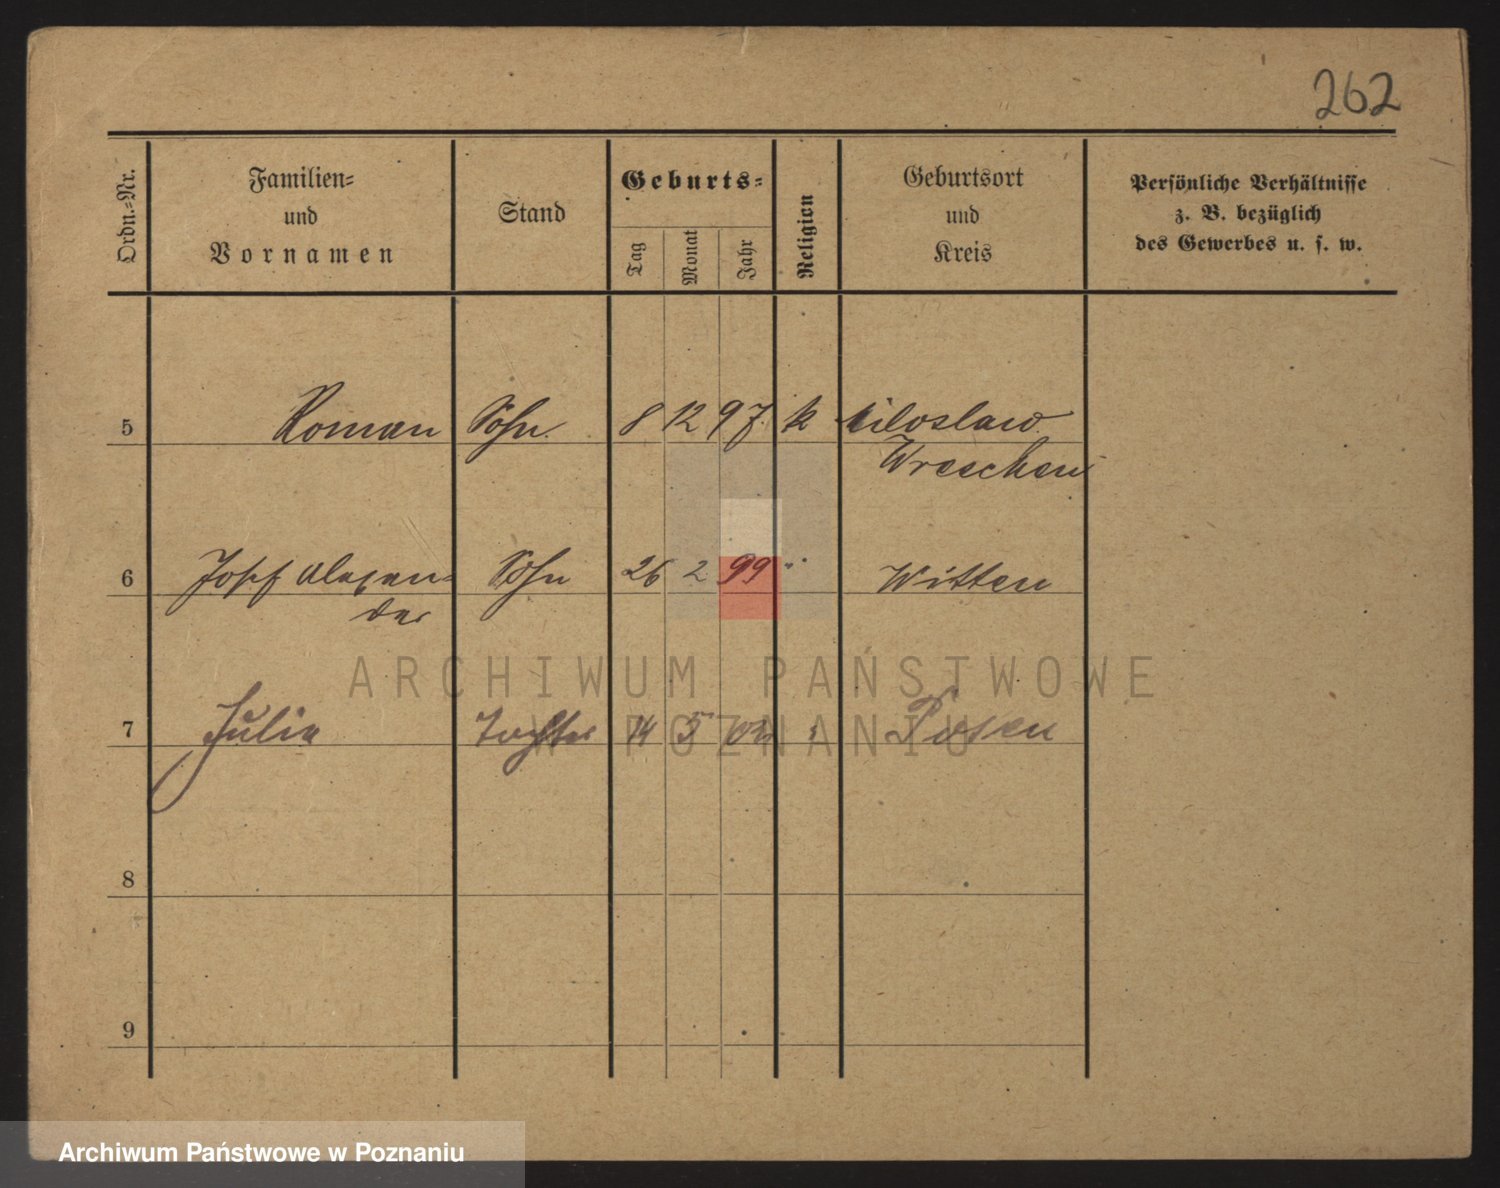 262
Ordn.-Nr.
Familien-
und
Vornamen
Stand
Geburts-
Tag
Monat
Jahr
Religion
Geburtsort
und
Kreis
Persönliche Verhältnisse
z. B. bezüglich
des Gewerbes u. s. w.
5 Roman Sohn 8 12 97 k Miloslaw
Wreschen
6 Josef Alexan-
der Sohn 26 2 99 " Witten
ARCHIWUM PAŃSTWOWE
W POZNANIU
7 Julia Tochter 14 5 Posen
8
9
Archiwum Państwowe w Poznaniu